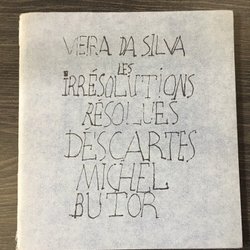 VIEIRA DA SILVA
LES
IRRÉSOLUTIONS
RÉSOLUES
DESCARTES
MICHEL
BUTOR